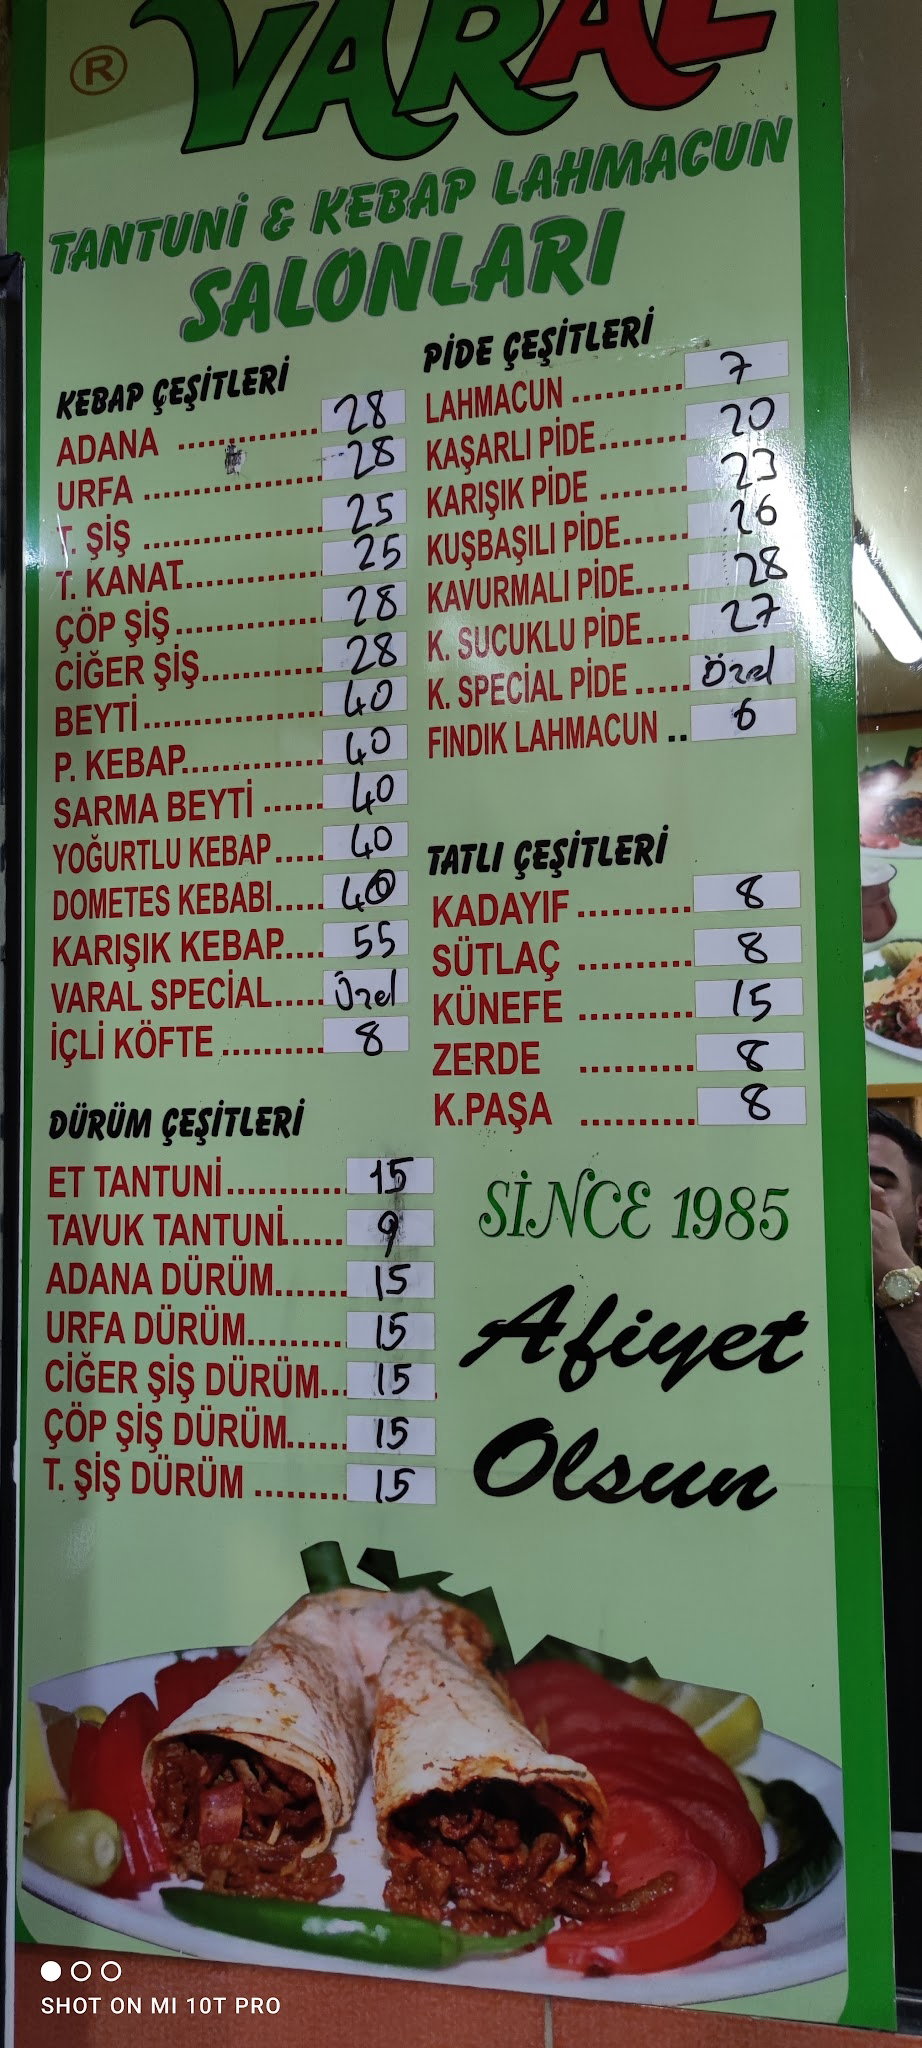 ®
VARAL
TANTUNİ & KEBAP LAHMACUN
SALONLARI
KEBAP ÇEŞİTLERİ
ADANA .............. 28
URFA .................. 28
T. ŞİŞ .................. 25
T. KANAT.............. 25
ÇÖP ŞİŞ.............. 28
CİĞER ŞİŞ............ 28
BEYTİ.................. 40
P. KEBAP.............. 40
SARMA BEYTİ ...... 40
YOĞURTLU KEBAP..... 40
DOMETES KEBABI..... 40
KARIŞIK KEBAP..... 55
VARAL SPECİAL..... Özel
İÇLİ KÖFTE .......... 8
DÜRÜM ÇEŞİTLERİ
ET TANTUNİ............ 15
TAVUK TANTUNİ...... 9
ADANA DÜRÜM....... 15
URFA DÜRÜM.......... 15
CİĞER ŞİŞ DÜRÜM... 15
ÇÖP ŞİŞ DÜRÜM...... 15
T. ŞİŞ DÜRÜM ......... 15
PİDE ÇEŞİTLERİ
LAHMACUN .......... 7
KAŞARLI PİDE........ 20
KARIŞIK PİDE ........ 23
KUŞBAŞILI PİDE...... 26
KAVURMALI PİDE..... 28
K. SUCUKLU PİDE.... 27
K. SPECİAL PİDE ..... Özel
FINDIK LAHMACUN .. 6
TATLI ÇEŞİTLERİ
KADAYIF .......... 8
SÜTLAÇ .......... 8
KÜNEFE .......... 15
ZERDE .......... 8
K.PAŞA .......... 8
SİNCE 1985
Afiyet
Olsun
SHOT ON MI 10T PRO